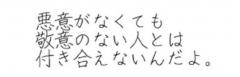 悪意がなくても
敬意のない人とは
付き合えないんだよ。